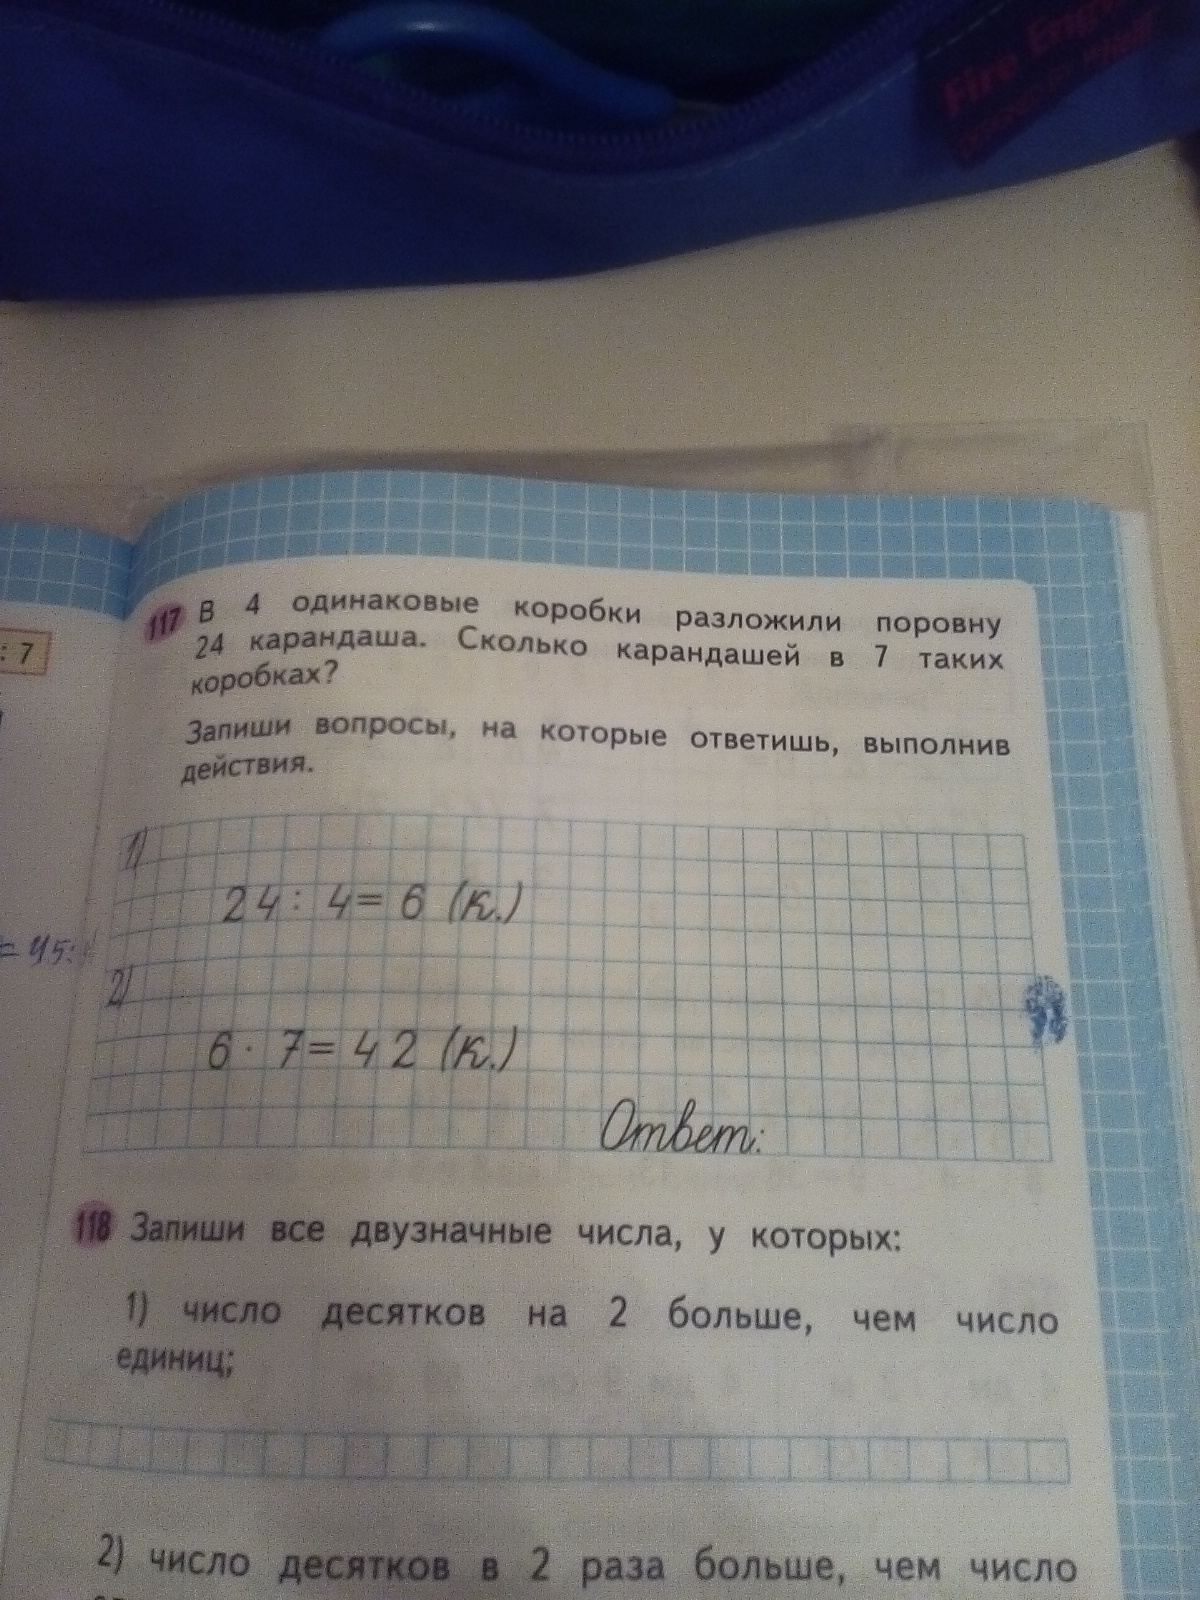 Fire Engine
: 7
117 В 4 одинаковые коробки разложили поровну
24 карандаша. Сколько карандашей в 7 таких
коробках?
Запиши вопросы, на которые ответишь, выполнив
действия.
1)
24 : 4 = 6 (к.)
= 45:
2)
6 · 7 = 42 (к.)
Ответ:
118 Запиши все двузначные числа, у которых:
1) число десятков на 2 больше, чем число
единиц;
2) число десятков в 2 раза больше, чем число